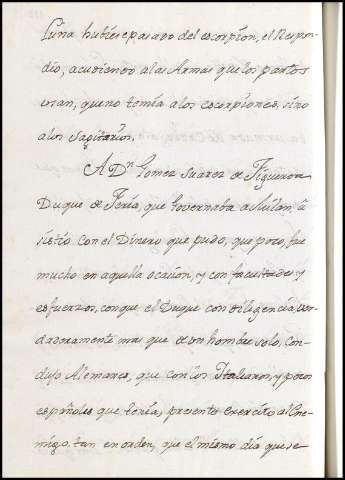 Luna hubiese pasado del escorpion, el Respon
dio, acudiendo a las Armas que los partos
usan, que no temia a los escorpiones, sino
a los Sagitarios.
A Dn. Gomez Suarez de Figueroa
Duque de Feria, que Governaba a Milan, a
sistio con el Dinero que pudo, que poco, fue
mucho en aquella ocasion, y con facultades y
esfuerzos, con que el Duque con diligencia, ver
daderamente mas que de un hombre solo, con
dujo Alemanes, que con los Italianos, y pocos
españoles que tenia, presento exercito al Ene
migo, tan en orden, que el mismo dia que se